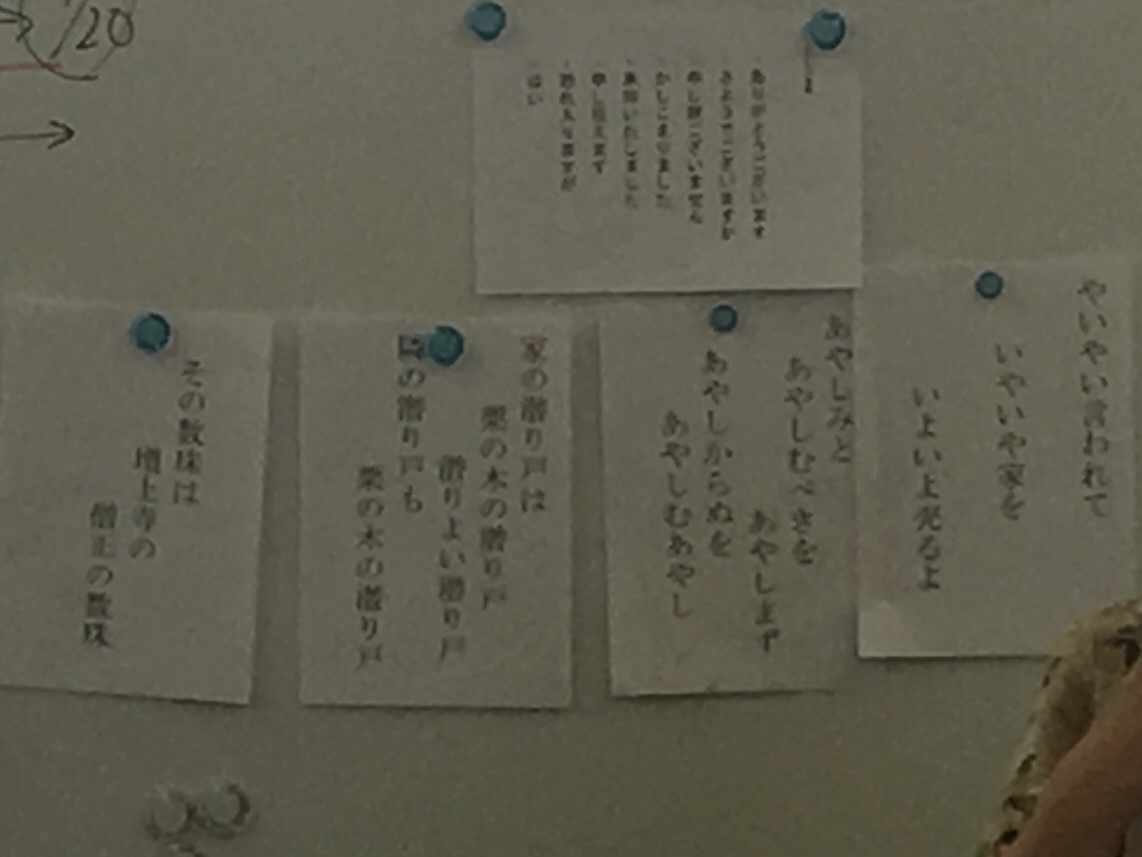 1/20
ありがとうございます
さようでございますか
申し訳ございません
かしこまりました
承知いたしました
申し伝えます
恐れ入りますが
はい
やいやい言われて
いやいや家を
いよいよ売るよ
あやしみと
あやしむべきを
あやしまず
あやしからぬを
あやしむあやし
家の潜り戸は
栗の木の潜り戸
潜りよい潜り戸
の潜り戸も
栗の木の潜り戸
その数珠は
増上寺の
僧正の数珠